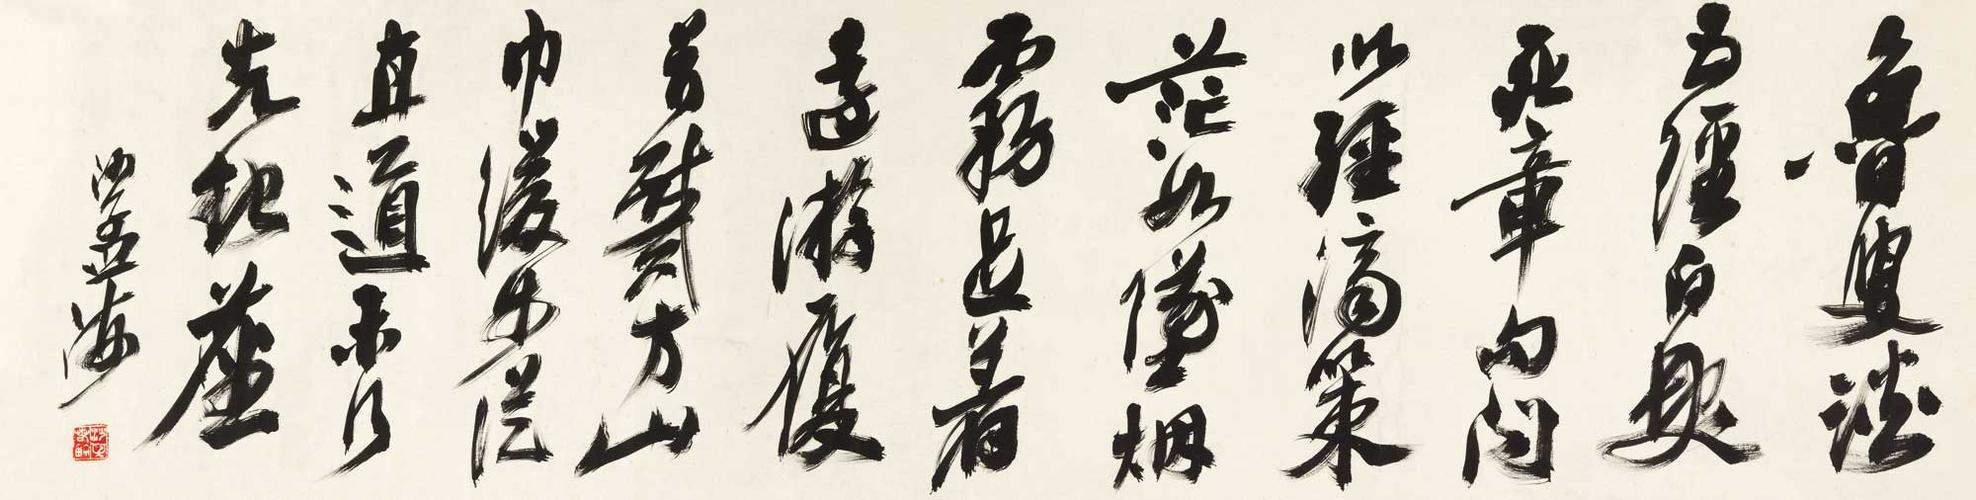 魯叟談
五經白髮
死章句問
以經濟策
茫如墜烟
霧足着
遠游履
首戴方山
巾緩步從
直道未行
先起塵
沙孟海